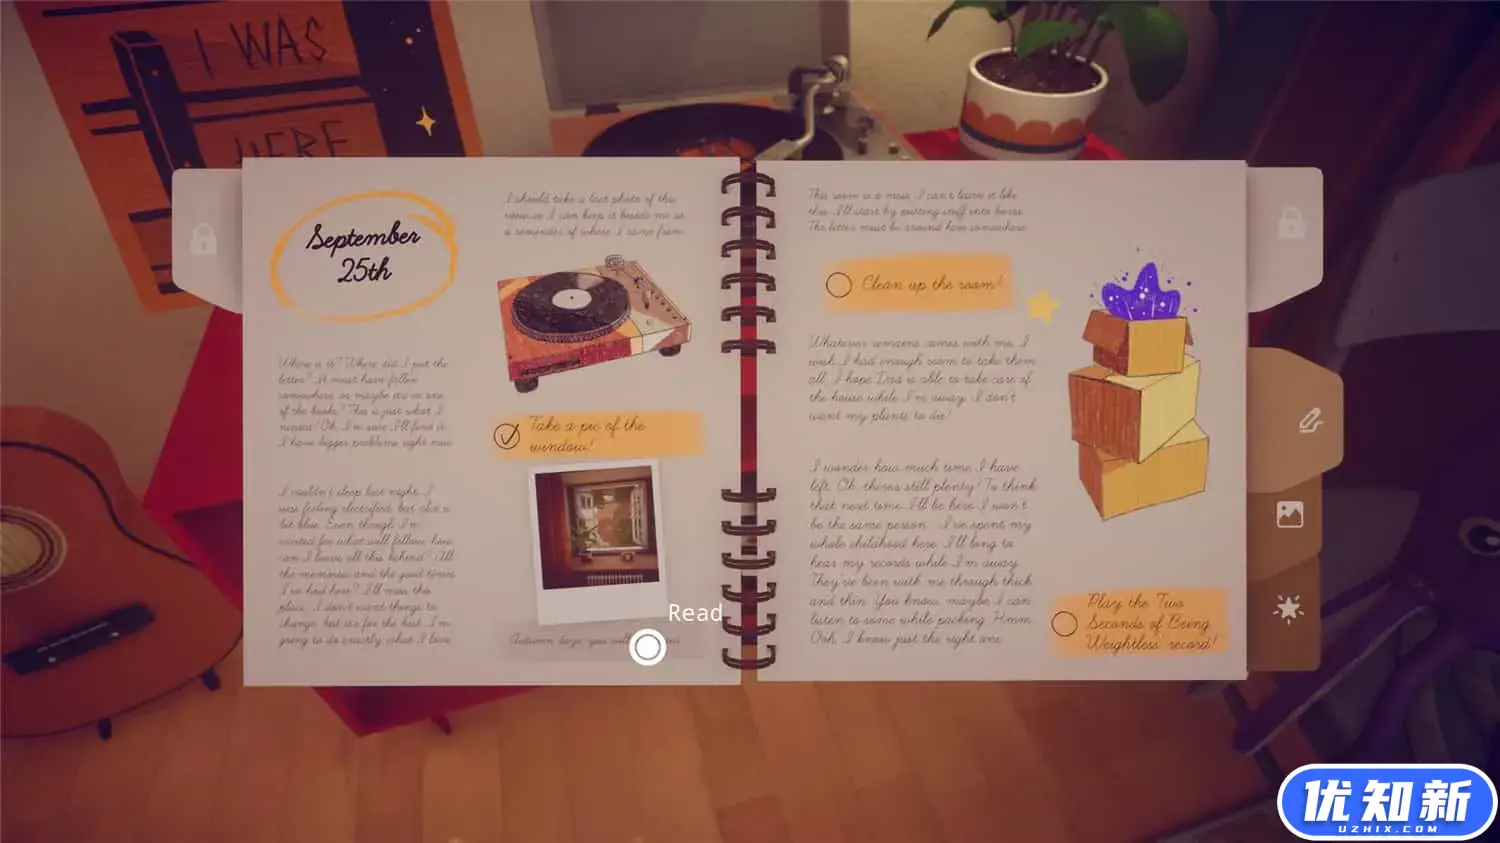 I WAS
HERE
September
25th
Where is it? Where did I put the
letter? It must have fallen
somewhere or maybe it's in one
of the books? This is just what I
needed! Oh, I'm sure I'll find it.
I have bigger problems right now.
I couldn't sleep last night. I
was feeling electrified, but also a
bit blue. Even though I'm
excited for what will follow, how
can I leave all this behind? All
the memories and the good times
I've had here? I'll miss this
place. I don't want things to
change, but it's for the best. I'm
going to do exactly what I love.
I should take a last photo of this
room so I can keep it beside me as
a reminder of where I came from.
Take a pic of the
window!
Autumn days, you will
Read
This room is a mess. I can't leave it like
this. I'll start by putting stuff into boxes.
The letter must be around here somewhere.
Clean up the room!
Whatever remains comes with me. I
wish I had enough room to take them
all. I hope Dad is able to take care of
the house while I'm away. I don't
want my plants to die!
I wonder how much time I have
left. Oh, theres still plenty! To think
that next time I'll be here I won't
be the same person... I've spent my
whole childhood here. I'll long to
hear my records while I'm away.
They've been with me through thick
and thin. You know, maybe I can
listen to some while packing. Hmm.
Ooh, I know just the right one.
Play the 'Two
Seconds of Being
Weightless' record!
优知新
UZHIX.COM